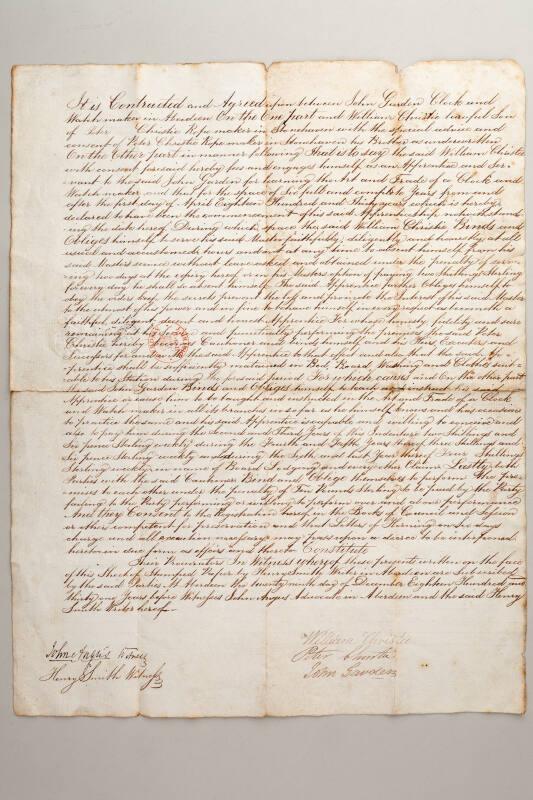 It is Contracted and Agreed upon between John Garden Clock and
Watch maker in Aberdeen On the One part and William Christie lawful Son
of Peter Christie Rope maker in Stonehaven with the special advice and
consent of Peter Christie Rope maker in Stonehaven his Brother as underwritten
On the Other part in manner following that is to say the said William Christie
with consent foresaid hereby fees and engages himself as an Apprentice and Ser-
vant to the said John Garden for learning the Art and Trade of a Clock and
Watch maker and that for the space of Six full and complete Years from and
after the first day of April Eighteen Hundred and Thirty years which is hereby
declared to have been the commencement of his said Apprenticeship notwithstand-
ing the date hereof During which space the said William Christie Binds and
Obliges himself to serve his said Master faithfully, diligently and honestly at all
usual and accustomed hours and
said Master's service without leave asked and obtained under the penalty of serv-
ing two days at the expiry hereof or in his Masters option of paying two Shillings Sterling
for every day he shall so absent himself The said Apprentice further Obliges himself to
obey the orders keep the secrets prevent the loss and promote the Interest of his said Master
to the utmost of his power and in fine to behave himself in every respect as becometh a
faithful, diligent, discreet and honest Apprentice For whose honesty, fidelity and
remaining and punctually performing the premises the said Peter
Christie hereby becomes Cautioner and binds himself and his Heirs Executors and
Successors for and with the said Apprentice to that effect and also that the said Ap-
prentice shall be sufficiently maintained in Bed, Board, Washing and Clothes suit-
able to his station during the foresaid period For which causes and on the other part
the said John Garden Binds and Obliges himself to teach and instruct the said
Apprentice or cause him to be taught and instructed in the Art and Trade of a Clock
and Watch maker in all its branches in so far as he himself knows and has occasion
to practice the same and his said Apprentice is capable and willing to conceive and
also to pay him during the first Three Years of this Indenture two Shillings and
Six pence Sterling weekly during the Fourth and Fifth Years thereof three Shillings and
Six pence Sterling weekly and during the Sixth and last Year thereof Four Shillings
Sterling weekly in name of Board Lodging and every other Claim Lastly both
Parties with the said Cautioner Bind and Oblige themselves to perform the pre-
mises to each other under the penalty of Ten Pounds Sterling to be paid by the Party
failing to the Party performing or willing to perform over and above performance
And they Consent to the Registration hereof in the Books of Council and Session
or others competent for preservation and that Letters of Horning on six days
charge and all execution necessary may pass upon a decree to be interponed
hereto in due form as effeirs and thereto Constitute
Their Procurators In Witness whereof these presents written on the face
of this Sheet of Stamped Paper by Henry Smith Writer in Aberdeen are Subscribed
by the said Parties at Aberdeen the twenty ninth day of December Eighteen Hundred and
Thirty one Years before Witnesses John Angus Advocate in Aberdeen and the said Henry
Smith Writer hereof
John Angus Witness
Henry Smith Witness
William Christie
Peter Christie
John Garden